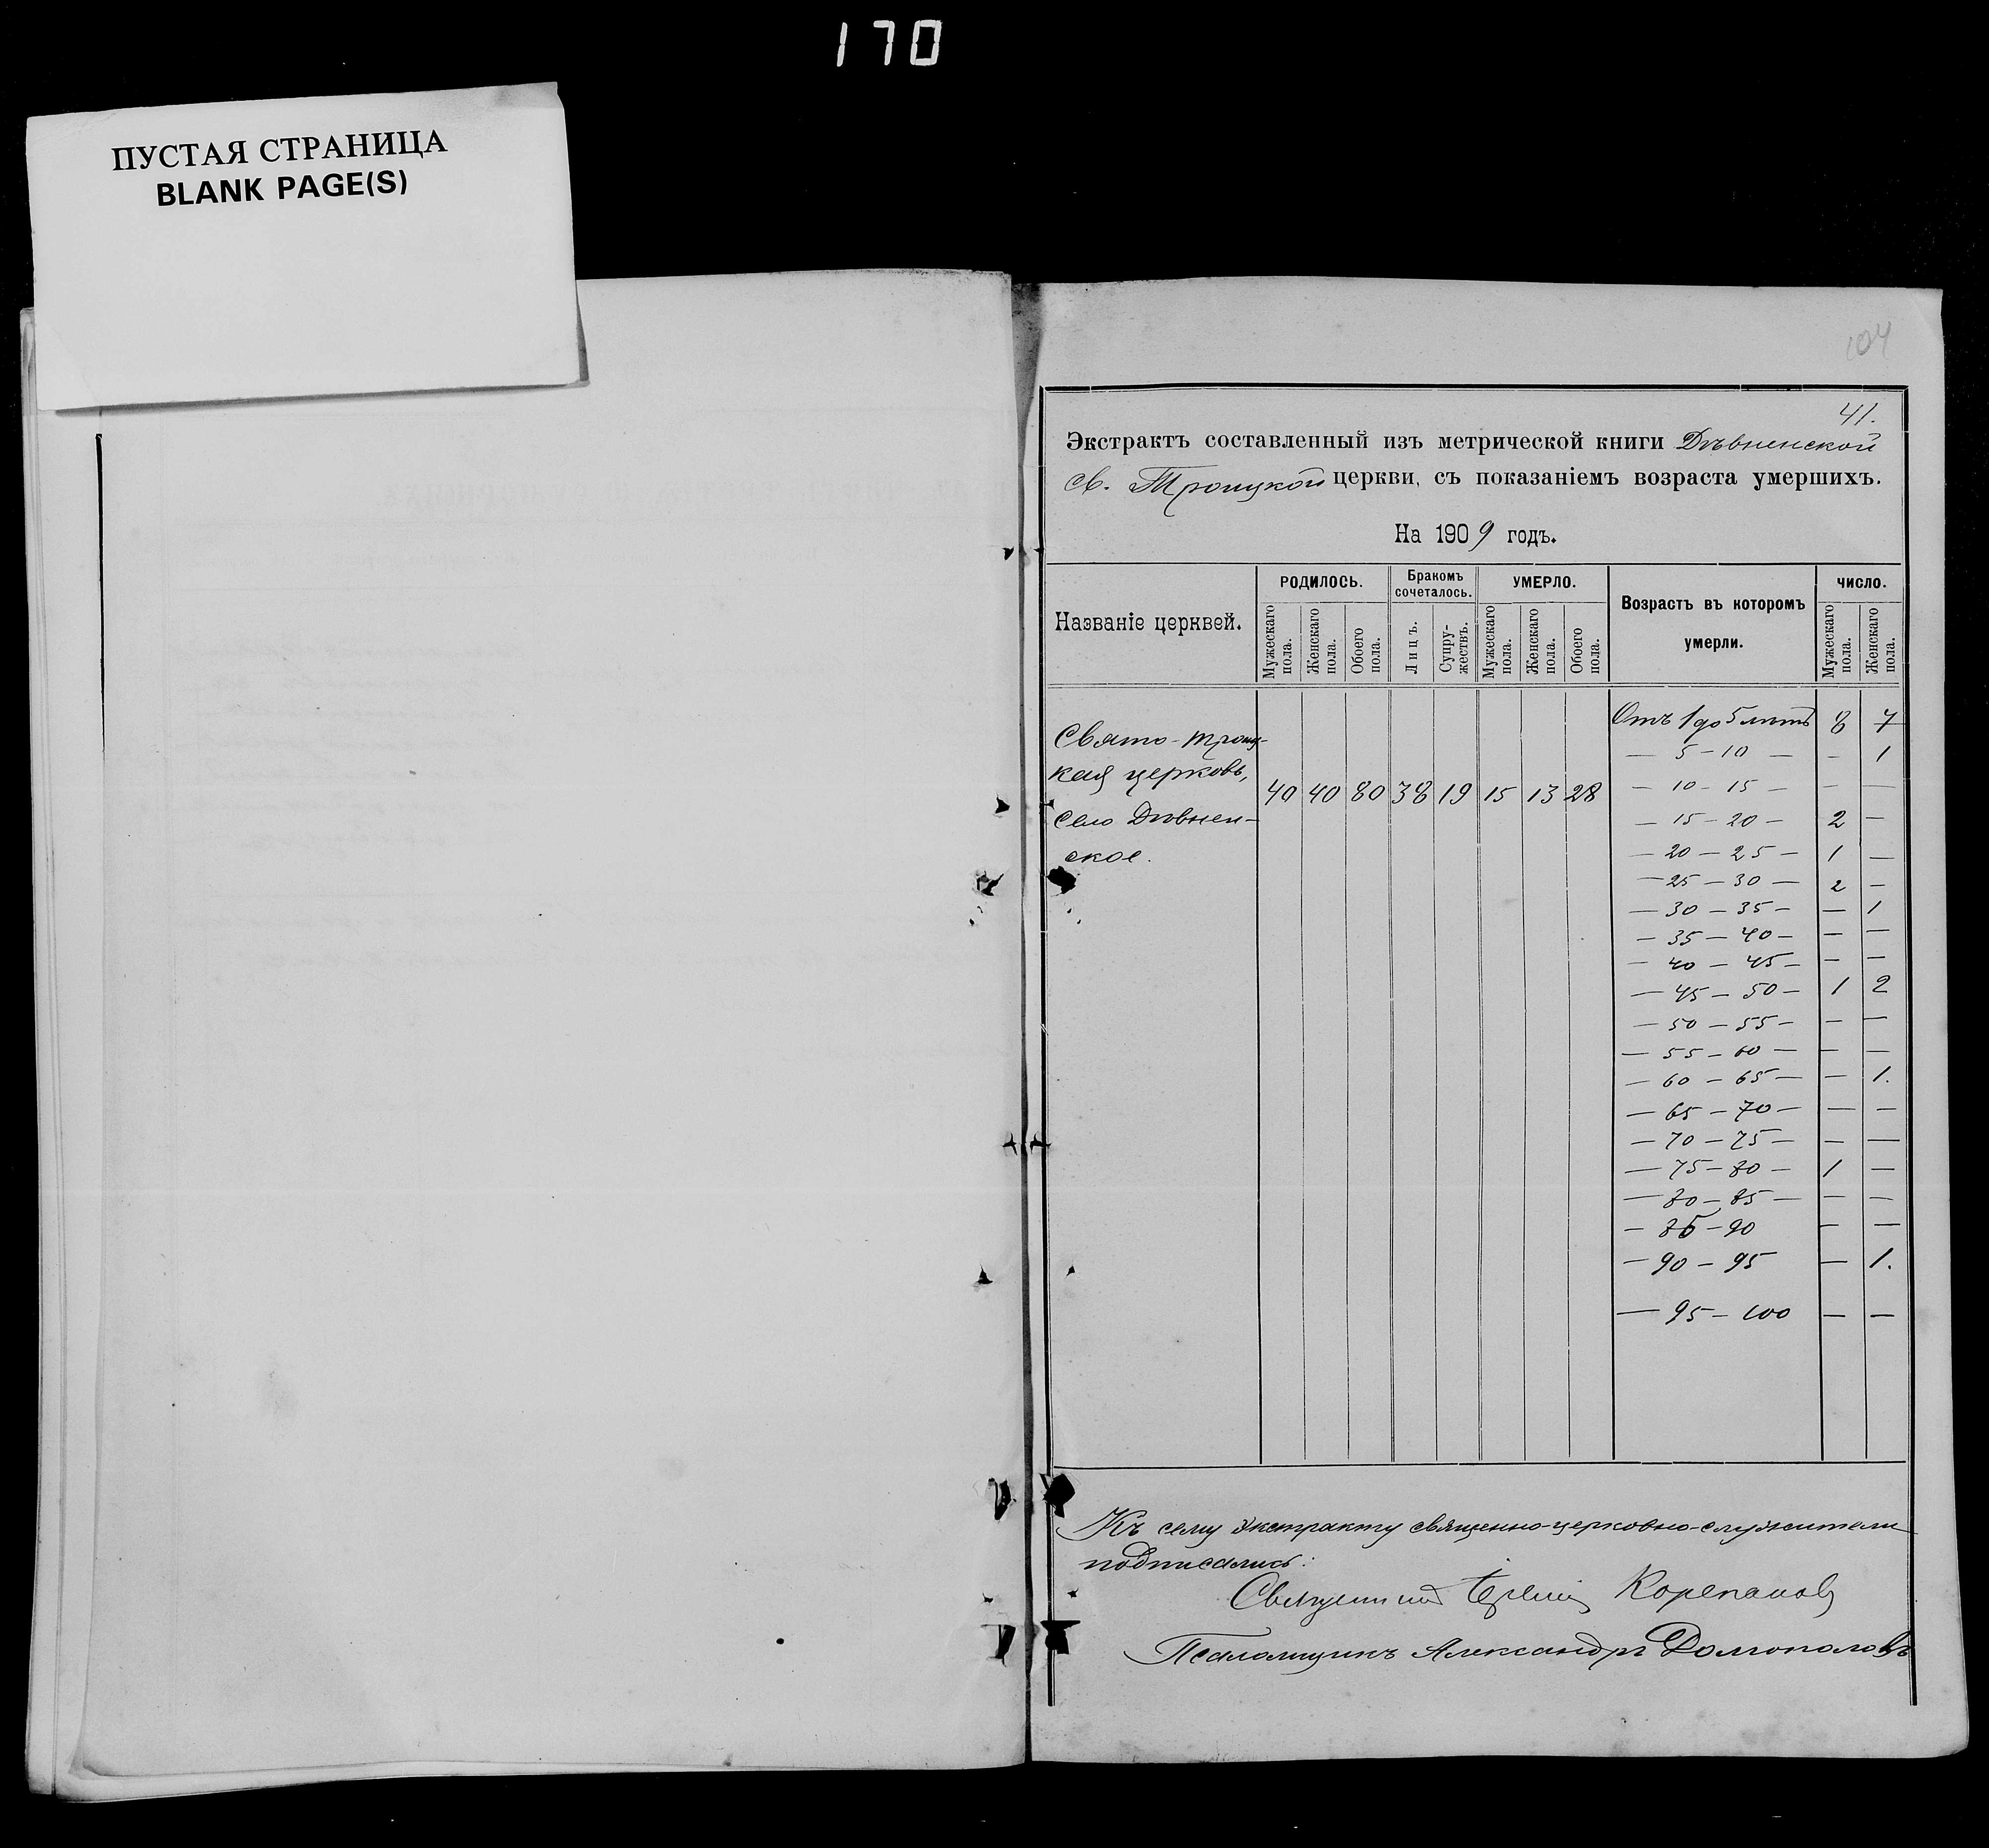 170
ПУСТАЯ СТРАНИЦА
BLANK PAGE(S)
104
41.
Экстрактъ составленный изъ метрической книги Дѣвненской
Св. Троицкой церкви, съ показаніемъ возраста умершихъ.
На 1909 годъ.
Названіе церквей.
РОДИЛОСЬ.
Бракомъ сочеталось.
УМЕРЛО.
Возрастъ въ которомъ умерли.
ЧИСЛО.
Мужескаго пола.
Женскаго пола.
Обоего пола.
Лицъ.
Супру-жествъ.
Мужескаго пола.
Женскаго пола.
Обоего пола.
Мужескаго пола.
Женскаго пола.
Свято-Троиц-
кая церковь,
село Дѣвнен-
ское.
40 40 80 38 19 15 13 28
Отъ 1 до 5 лѣтъ 8 7
— 5 – 10 — – 1
— 10 – 15 — – —
— 15 – 20 — 2 —
— 20 — 25 — 1 —
— 25 — 30 — 2 —
— 30 — 35 — — 1
— 35 — 40 — — —
— 40 — 45 — — —
— 45 — 50 — 1 2
— 50 — 55 — — —
— 55 — 60 — — —
— 60 — 65 — — 1.
— 65 — 70 — — —
— 70 — 75 — — —
— 75 — 80 — 1 —
— 80 — 85 — — —
— 85 — 90 — —
— 90 — 95 — 1.
— 95 — 100 — —
Къ сему экстракту священно-церковно-служители
подписались:
Священникъ Корепановъ
Псаломщикъ Александръ